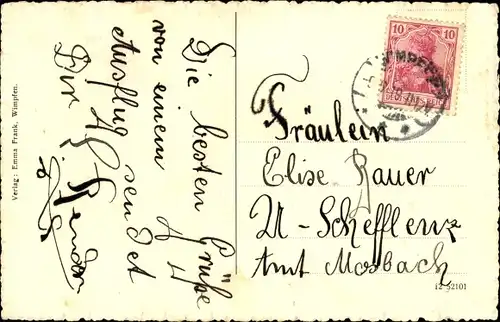 Die besten Grüße
von einem
Ausflug sendet
Dir
Fräulein
Elise Bauer
U-Schefflenz
Amt Mosbach
Verlag: Emma Frank, Wimpfen.
12 52101
10 10
WIMPFEN